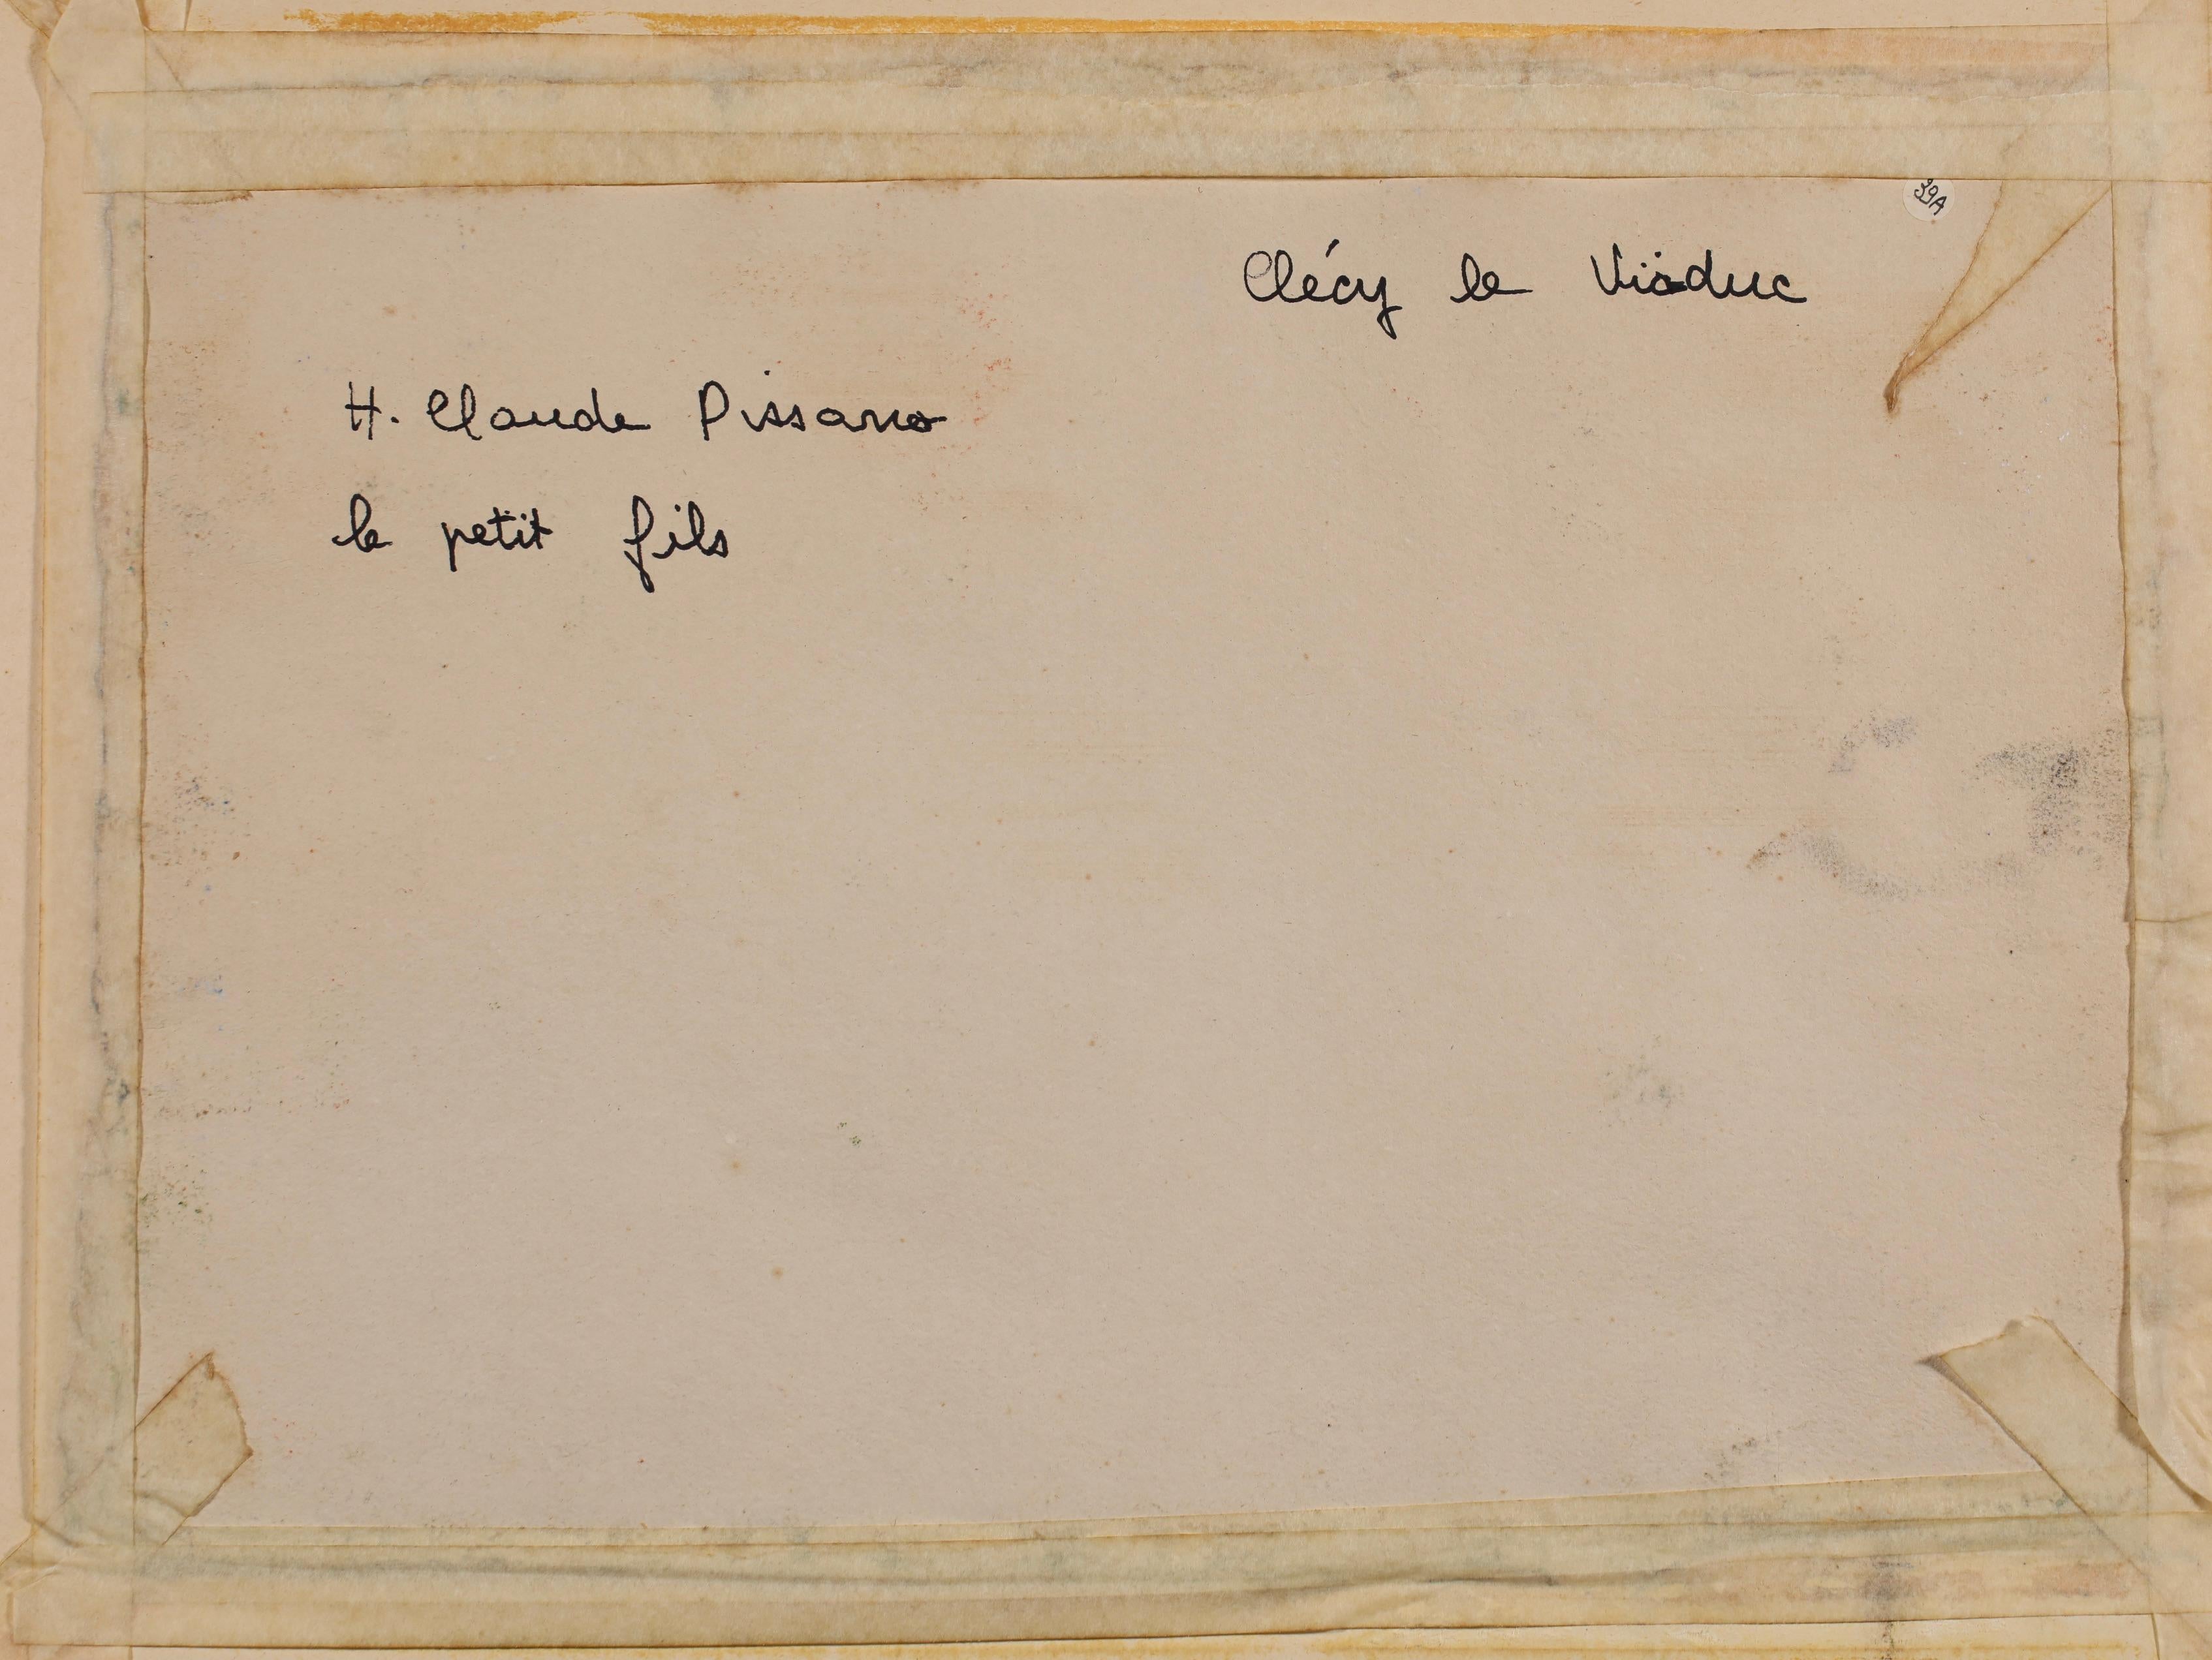 39A
Clécy le Viaduc
H. Claude Pissarro
le petit fils